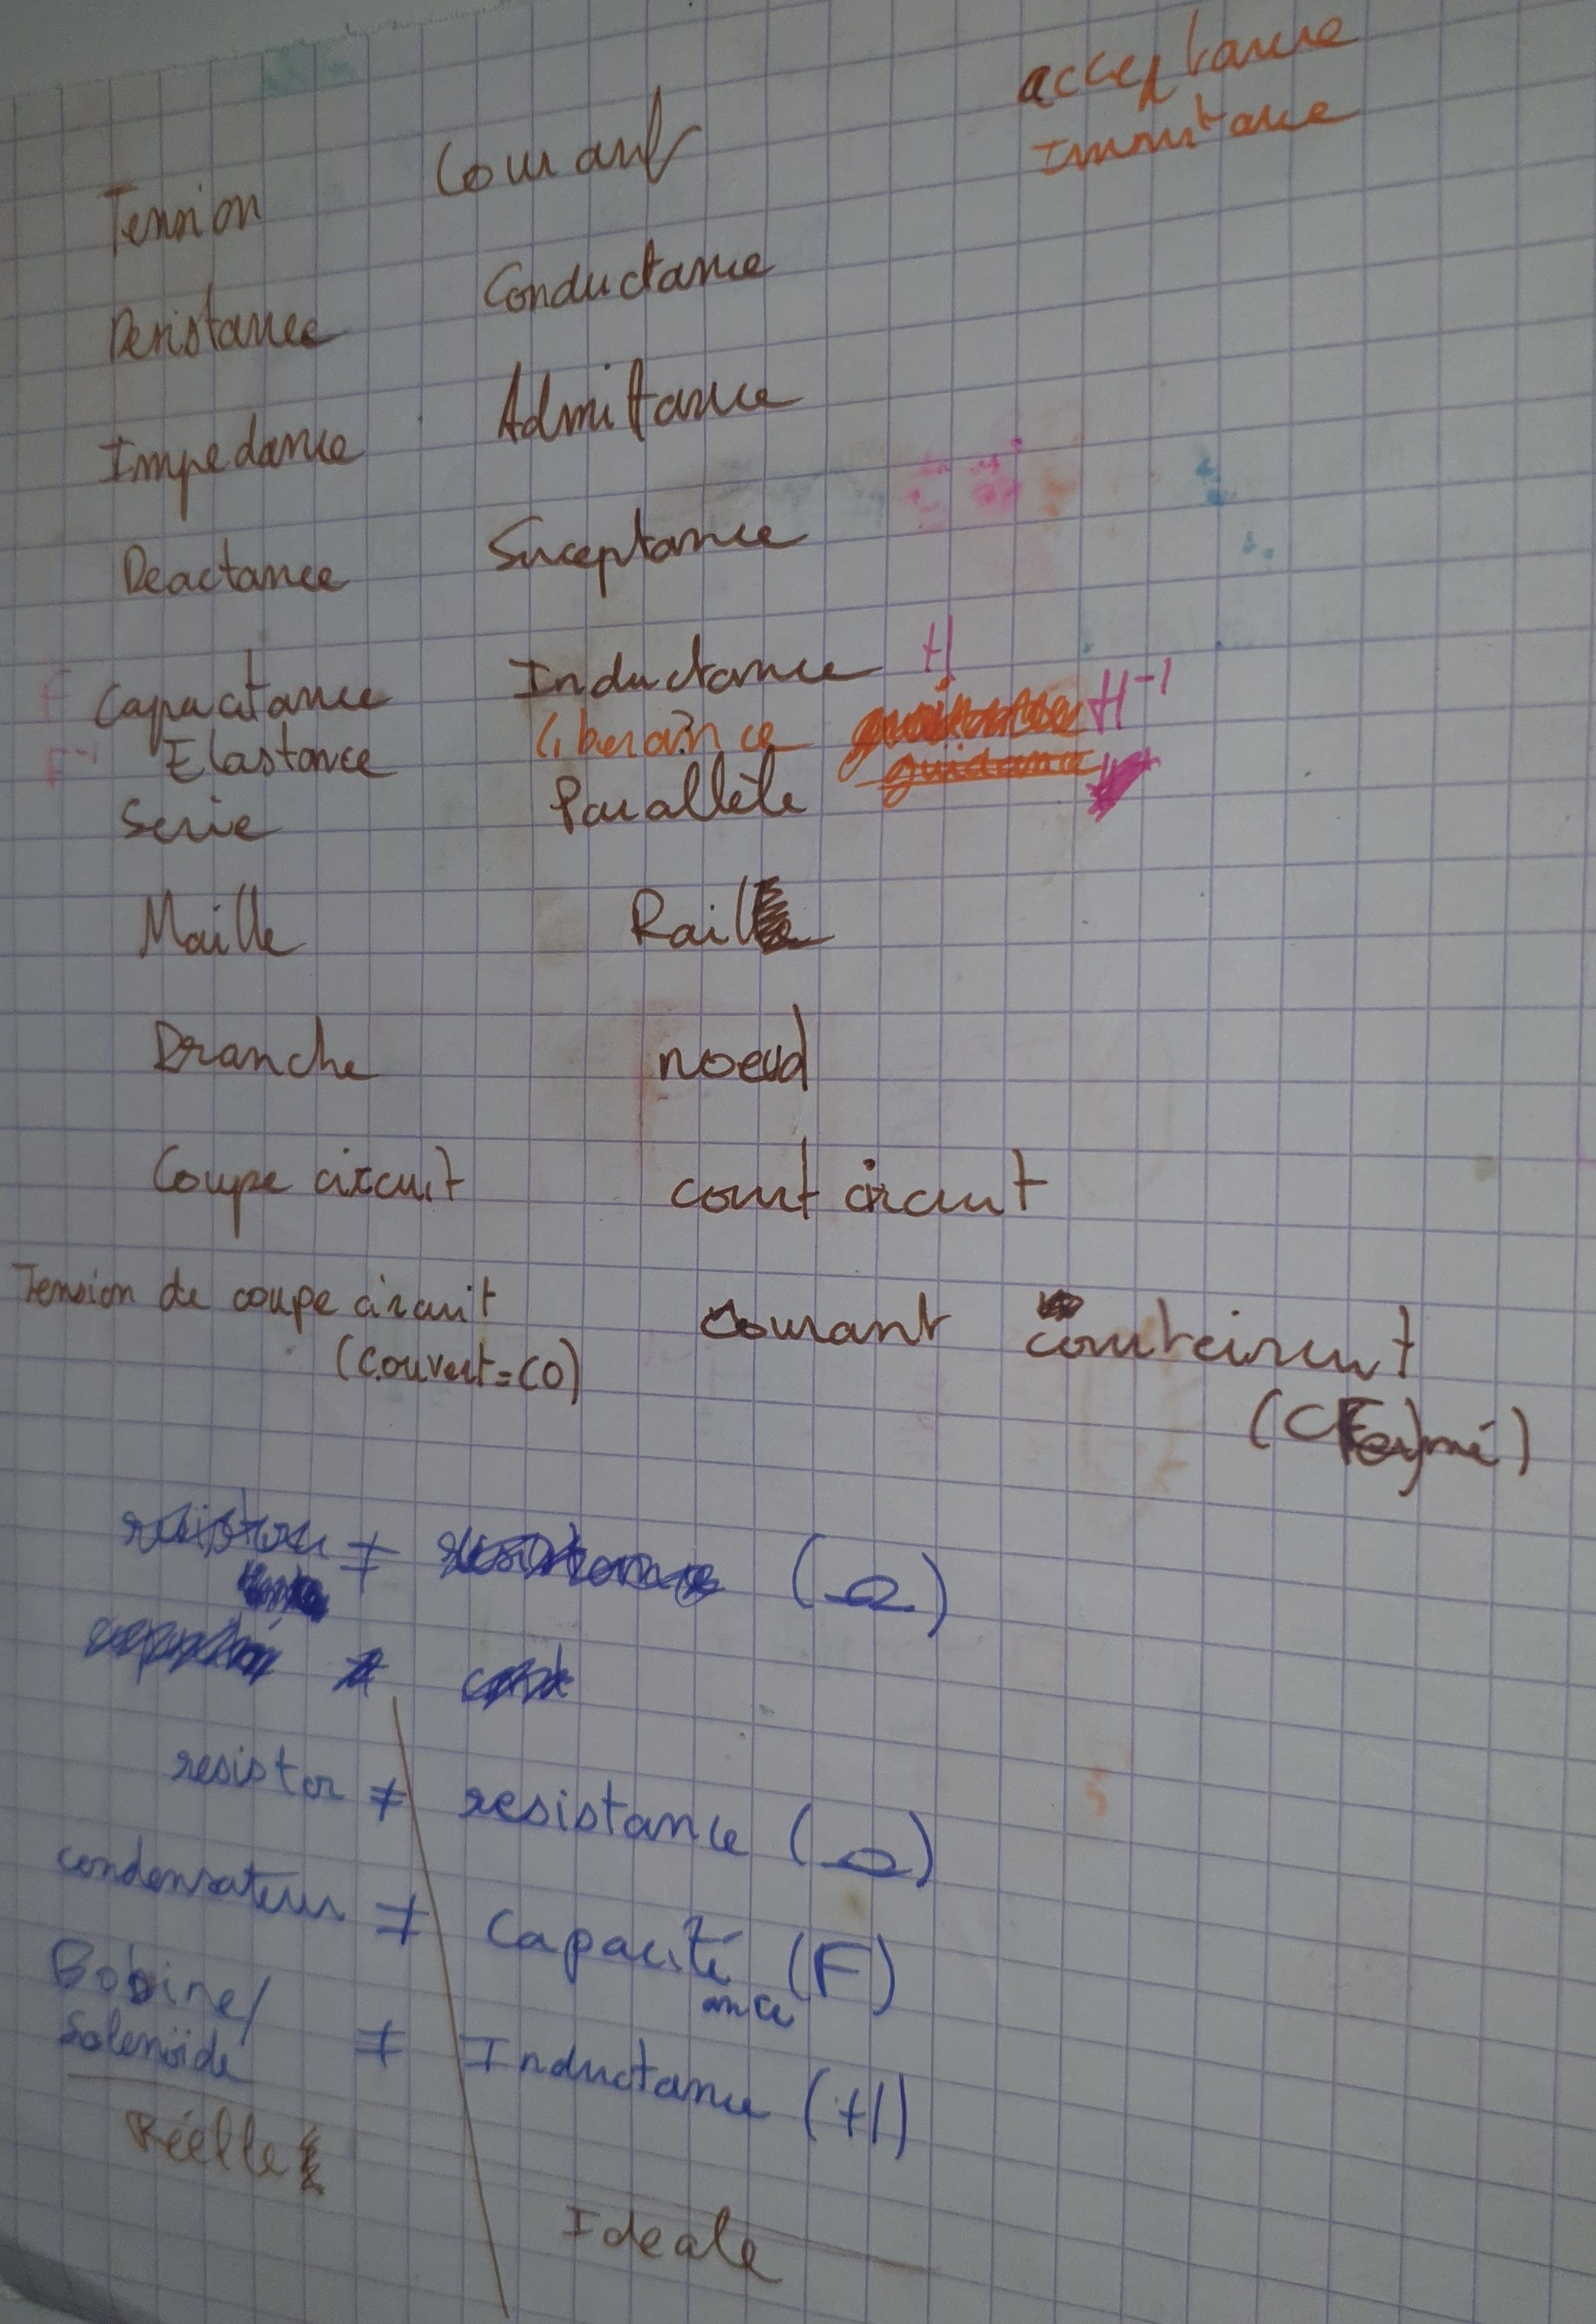 acceptance
Immitance
Tension Courant
Resistance Conductance
Impedance Admitance
Reactance Suceptance
F Capacitance Inductance H
F⁻¹ Elastance liberance H⁻¹
Serie Parallèle
Maille Rail
Branche noeud
Coupe circuit court circuit
Tension de coupe circuit courant courtcircuit
(Couvert=CO) (CFermé)
≠ (Ω)
resistor ≠ resistance (Ω)
condensateur ≠ Capacité (F)
ance
Bobine/
Solenoïde ≠ Inductance (H)
Réelle
Ideale